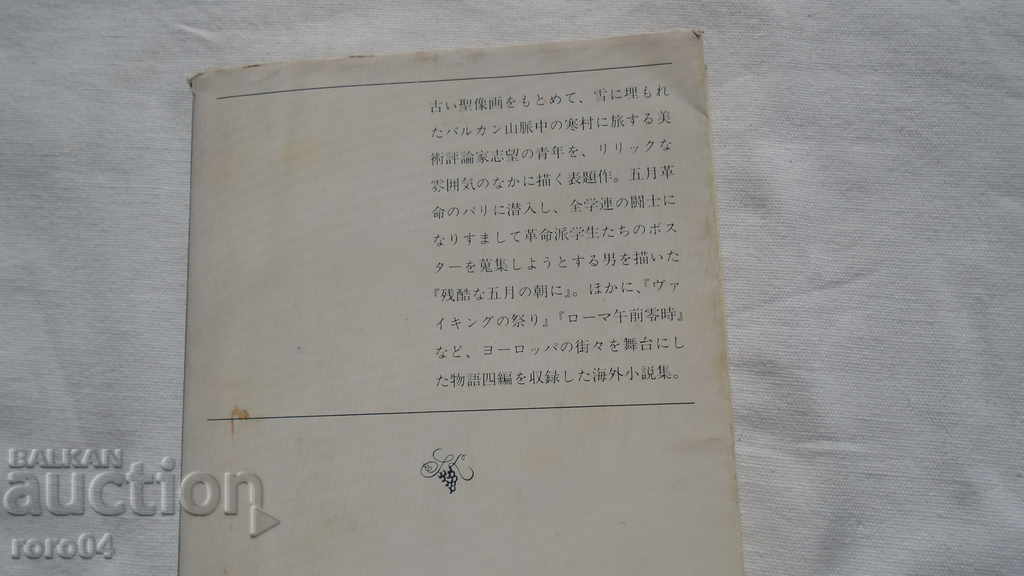 古い聖像画をもとめて、雪に埋もれ
たバルカン山脈中の寒村に旅する美
術評論家志望の青年を、リリックな
雰囲気のなかに描く表題作。五月革
命のパリに潜入し、全学連の闘士に
なりすまして革命派学生たちのポス
ターを蒐集しようとする男を描いた
『残酷な五月の朝に』。ほかに、『ヴァ
イキングの祭り』『ローマ午前零時』
など、ヨーロッパの街々を舞台にし
た物語四編を収録した海外小説集。
BALKAN
auction
roro04